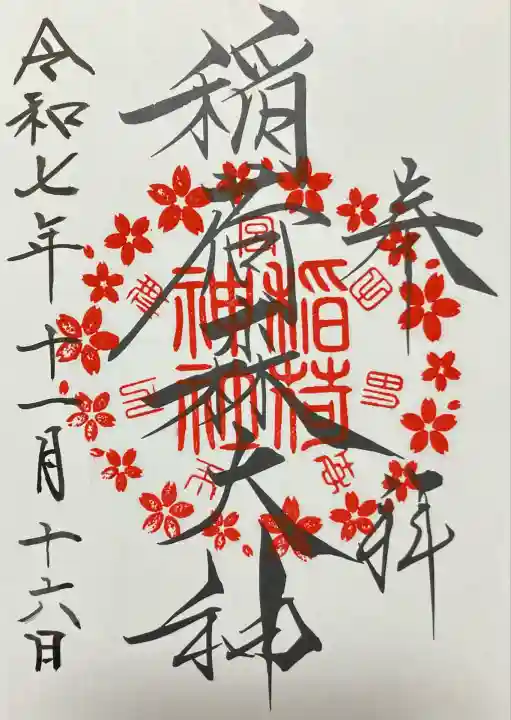 奉拝
稲荷森大神
稲荷神社
令和七年十一月十六日